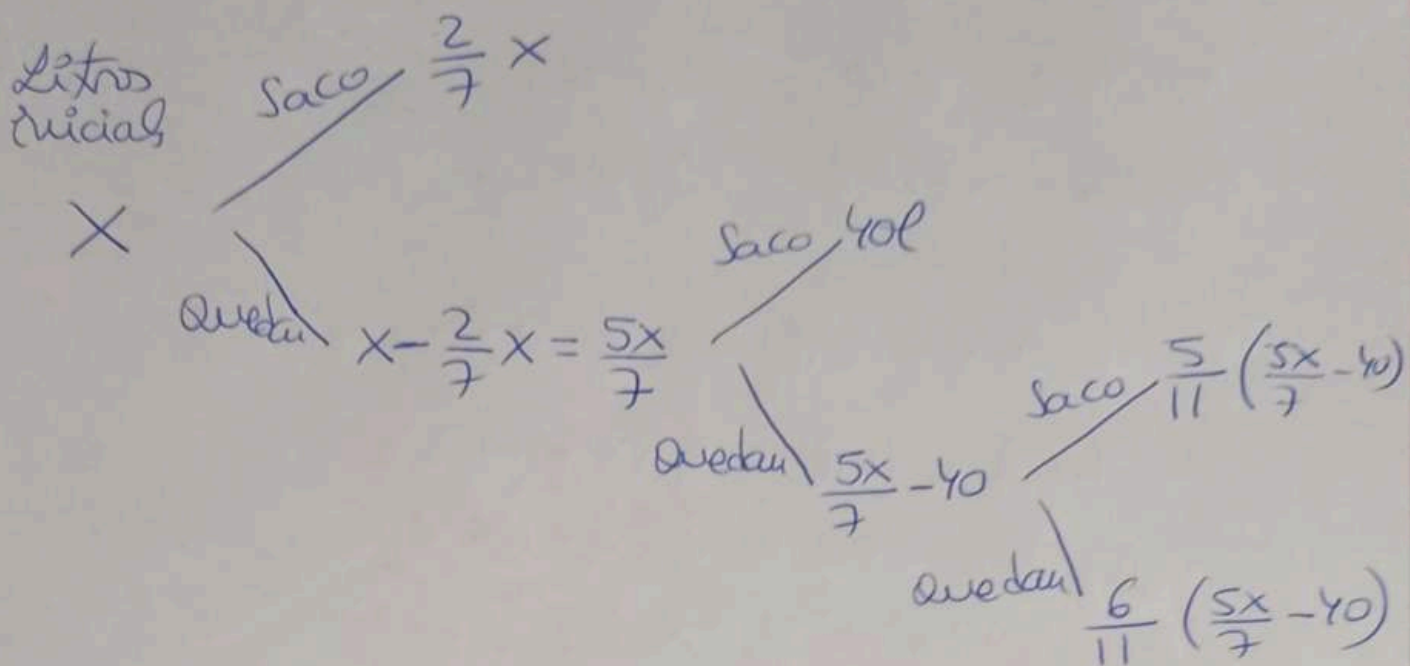 Litros
inicial
Saco 2/7 x
X
Quedan x - 2/7 x = 5x/7
Saco 40l
Quedan 5x/7 - 40
Saco 5/11 (5x/7 - 40)
Quedan 6/11 (5x/7 - 40)